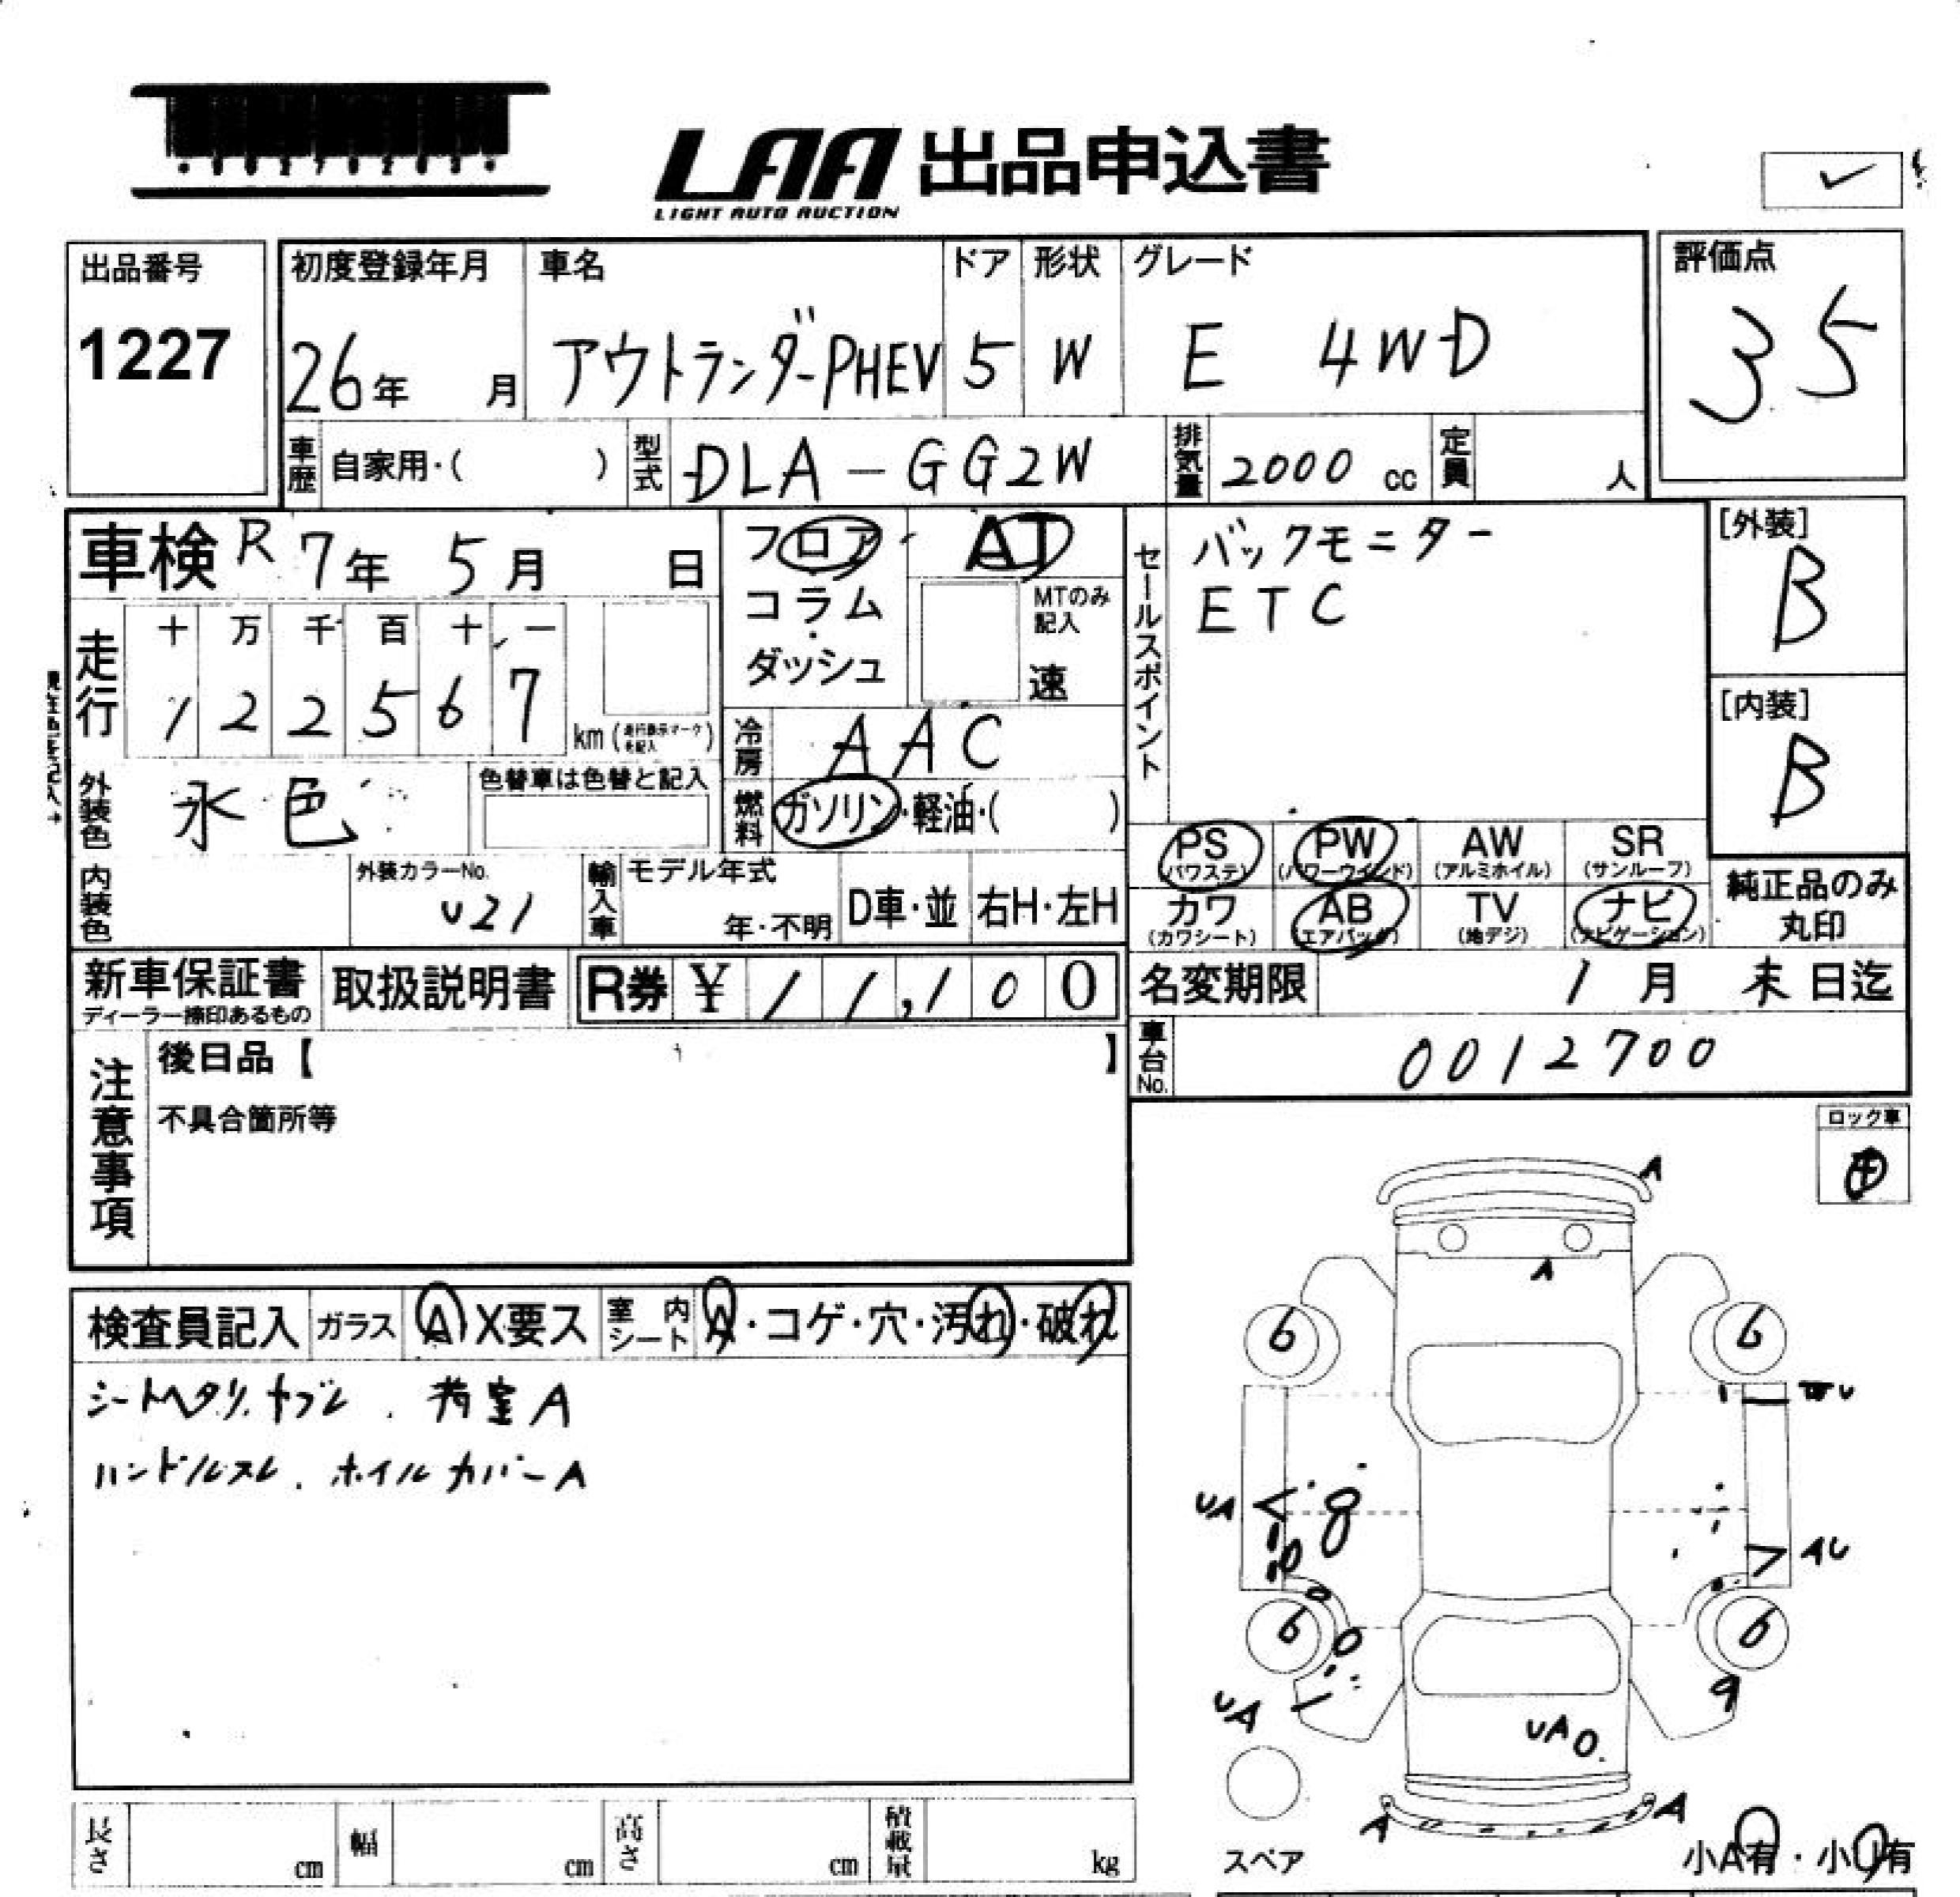 LAA 出品申込書
LIGHT AUTO AUCTION
出品番号
1227
初度登録年月
26年 月
車名
アウトランダーPHEV
ドア
5
形状
W
グレード
E 4WD
評価点
35
車歴 自家用・( )
型式 DLA-GG2W
排気量 2000 cc
定員 人
車検 R 7年 5月 日
走行
十 万 千 百 十 一
1 2 2 5 6 7 km (走行表示マークを記入)
フロア
コラム
ダッシュ
AT
MTのみ記入
速
冷房 AAC
燃料 ガソリン・軽油・( )
外装色 水色
色替車は色替と記入
内装色
外装カラーNo.
U21
輸入車
モデル年式
年・不明
D車・並
右H・左H
セールスポイント
バックモニター
ETC
[外装]
B
[内装]
B
PS (パワステ)
PW (パワーウインド)
AW (アルミホイル)
SR (サンルーフ)
カワ (カワシート)
AB (エアバッグ)
TV (地デジ)
ナビ (ナビゲーション)
純正品のみ
丸印
新車保証書
ディーラー捺印あるもの
取扱説明書
R券 ¥ 11,100
名変期限 1月 末日迄
車台No. 0012700
注意事項
後日品【 】
不具合箇所等
ロック車
検査員記入
ガラス A X要ス
室内シート A・コゲ・穴・汚れ・破れ
シートヘタリ、ヤブレ、荷室A
ハンドルスレ、ホイルカバーA
A
A
6
6
UA
8
AU
6
6
9
UA
UA
A
A
スペア
小A有・小U有
長さ cm
幅 cm
高さ cm
積載量 kg